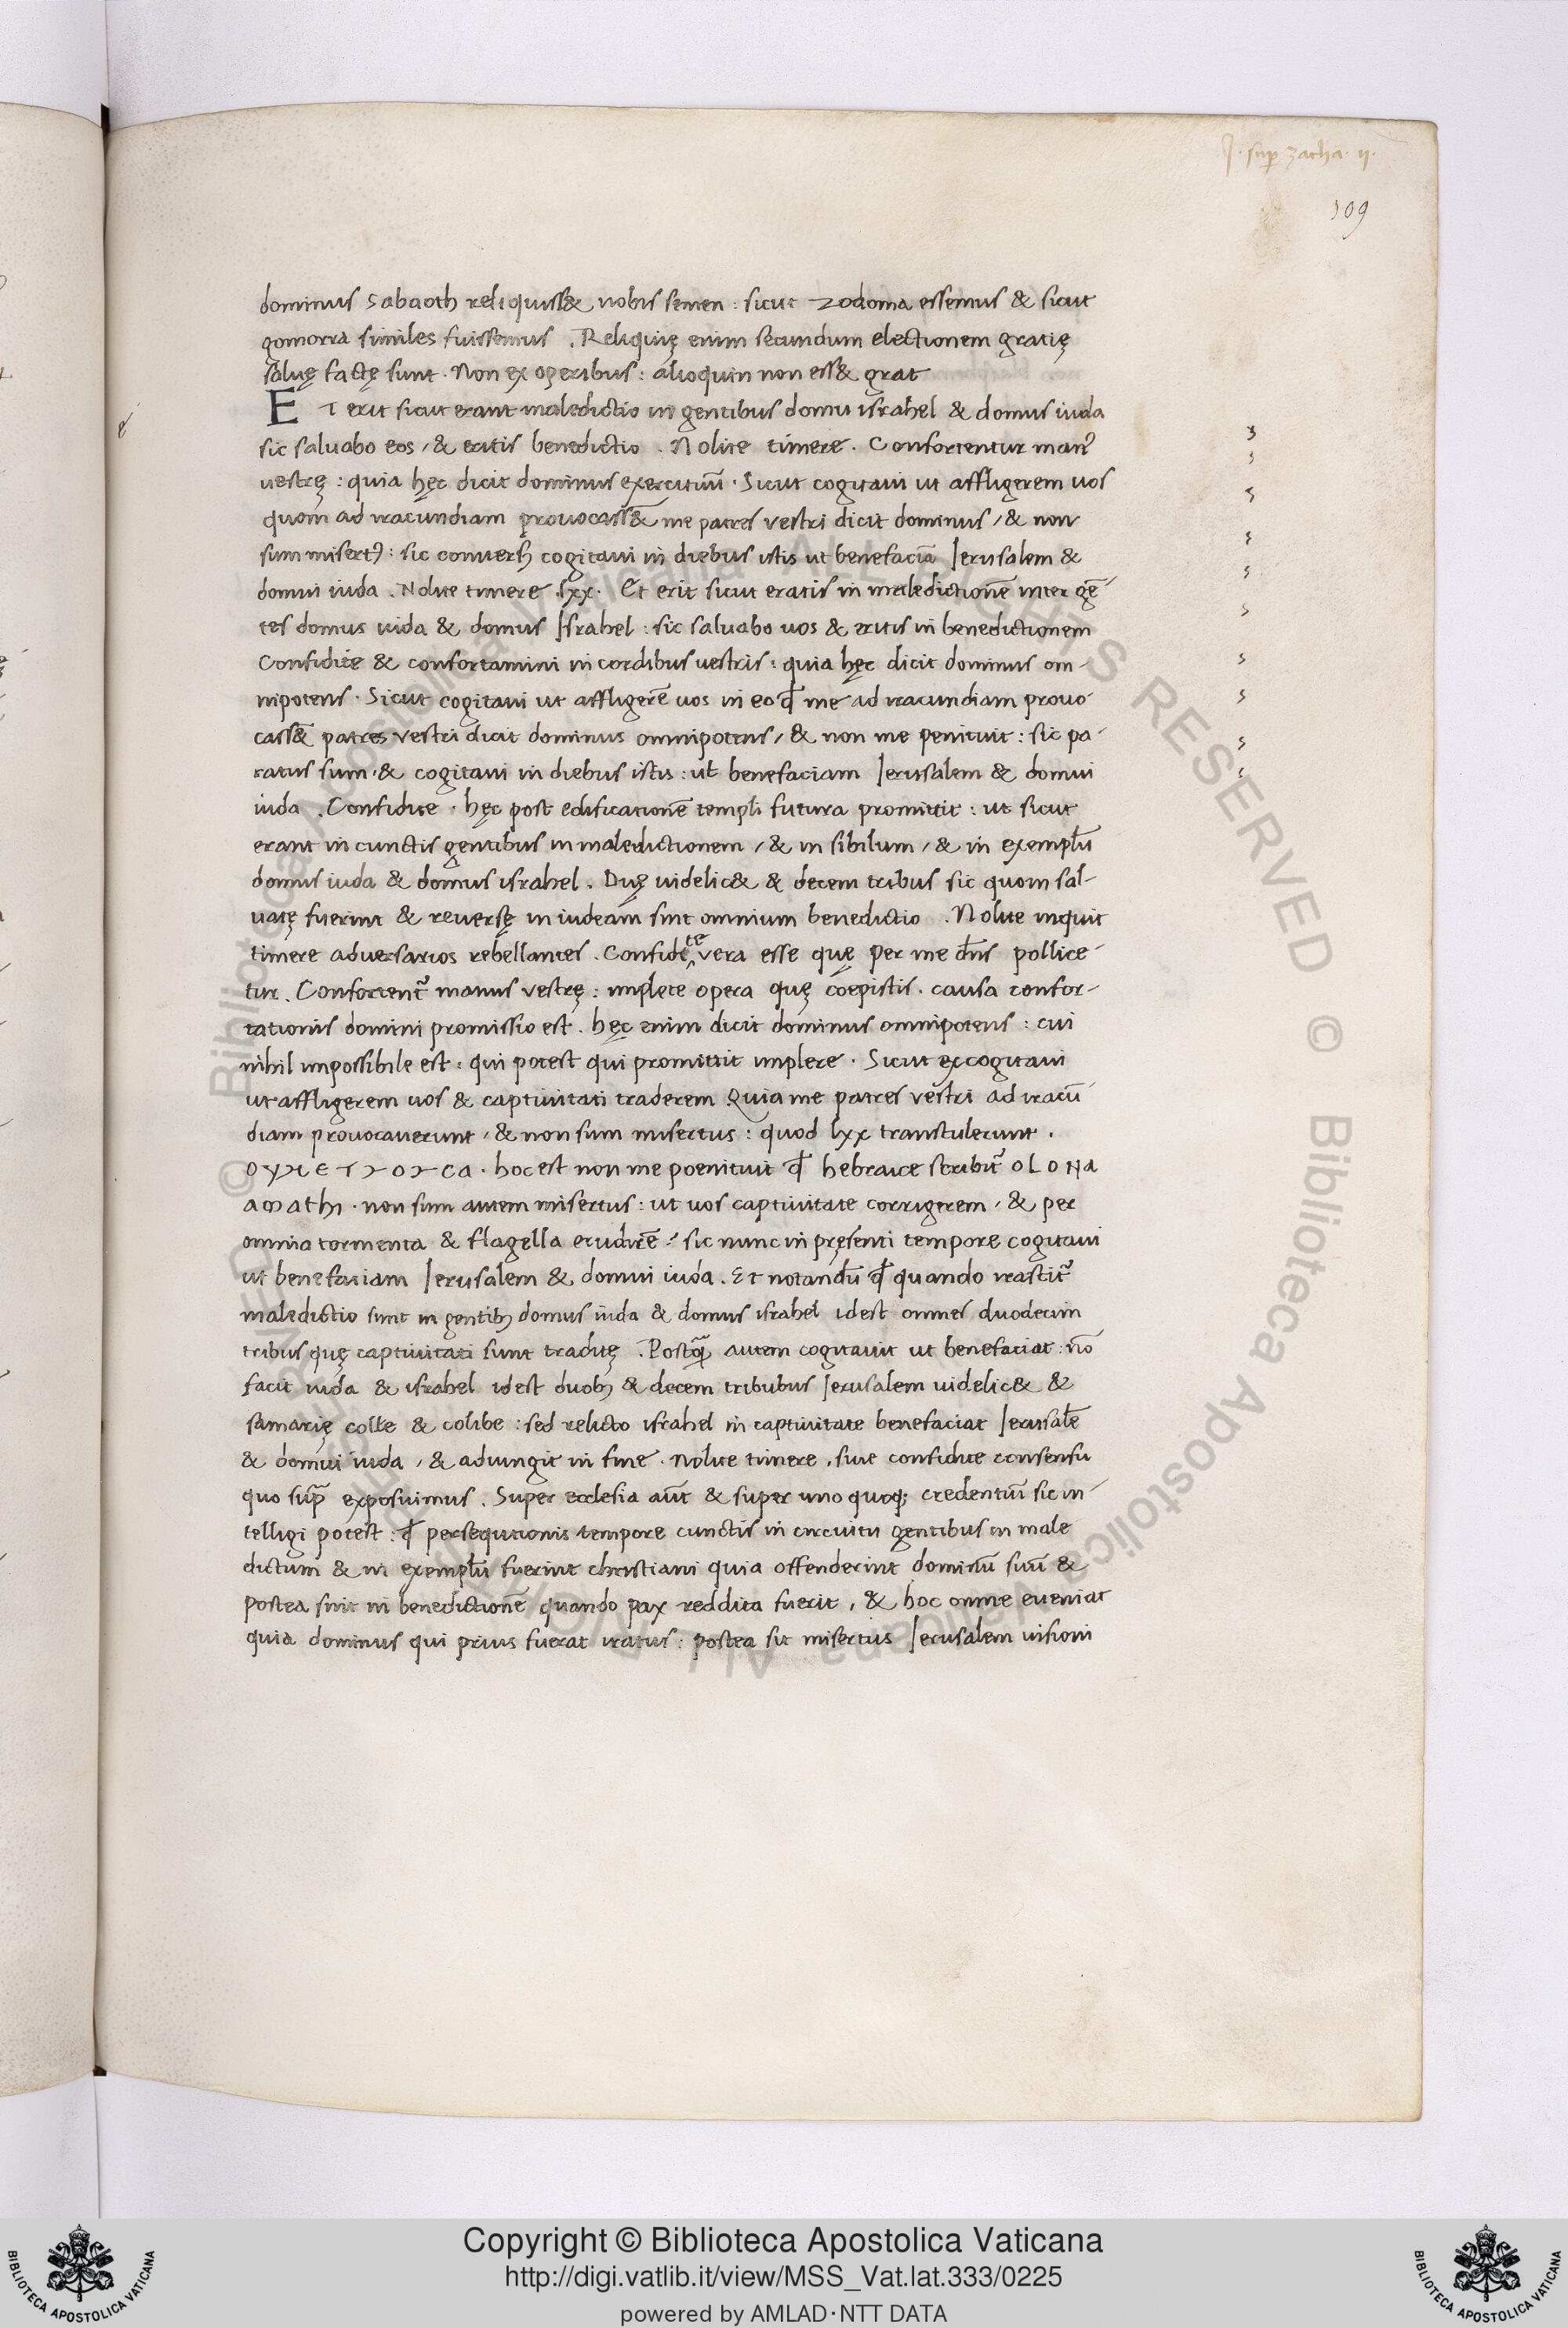 J. sup zacha. ii.
109
dominus sabaoth reliquiss& nobis semen : sicut zodoma essemus & sicut
gomorra similes fuissemus . Reliquię enim secundum electionem gratię
saluę factę sunt . Non ex operibus : alioquin non ess& grat
ET erit sicut erant maledictio in gentibus domu israhel & domus iuda
sic saluabo eos , & eritis benedictio . Nolite timere . Confortentur man
uestrę : quia hęc dicit dominus exercituū . Sicut cogitaui ut affligerem uos
quom ad iracundiam prouocass& me patres vestri dicit dominus , & non
sum misert9 : sic conuers9 cogitaui in diebus istis ut benefaciā Jerusalem &
domui iuda . Nolite timere . lxx . Et erit sicut eratis in maledictionē inter gē-
tes domus iuda & domus Israhel : sic saluabo uos & eritis in benedictionem
Confidite & confortamini in cordibus uestris : quia hęc dicit dominus om-
nipotens . Sicut cogitaui ut affligerē uos in eo qđ me ad iracundiam prouo-
cass& patres vestri dicit dominus omnipotens , & non me penituit : sic pa-
ratus sum , & cogitaui in diebus istis : ut benefaciam Jerusalem & domui
iuda . Confidite . hęc post edificationē templi futura promittit : ut sicut
erant in cunctis gentibus in maledictionem , & in sibilum , & in exemplū
domus iuda & domus israhel . Duę uidelic& & decem tribus sic quom sal-
uatę fuerint & reuersę in iudeam sint omnium benedictio . Nolite inquit
timere aduersarios rebellantes . Confidete vera esse quę per me dn̄s pollice-
tur . Confortent᷑ manus vestrę : implete opera quę coepistis . causa confor-
tationis domini promissio est . hęc enim dicit dominus omnipotens : cui
nihil impossibile est : qui potest qui promittit implere . Sicut excogitaui
ut affligerem uos & captiuitati traderem Quia me patres vestri ad iracū-
diam prouocauerunt , & non sum misertus : quod lxx transtulerunt .
. hoc est non me poenituit qđ hebraice scribit᷑ OLONA
amath . non sum autem misertus : ut uos captiuitate corrigerem , & per
omnia tormenta & flagella erudirē : sic nunc in pręsenti tempore cogitaui
ut benefaciam Jerusalem & domui iuda . Et notandū qđ quando irascit᷑
maledictio sunt in gentib3 domus iuda & domus israhel idest omnes duodecim
tribus quę captiuitati sunt traditę . Postq̄ autem cogitauit ut benefaciat : nō
facit iuda & israhel idest duob3 & decem tribubus Jerusalem uidelic& &
samarię colle & colibe : sed relicto israhel in captiuitate benefaciat Jerusalē
& domui iuda , & adiungit in fine . Nolite timere , siue confidite consensu
quo sup̄ exposuimus . Super ecclesia aūt & super uno quoq; credentiū sic in-
telligi potest : qđ persequtionis tempore cunctis in circuitu gentibus in male
dictum & in exemplū fuerint christiani quia offenderint dominū suū &
postea sint in benedictionē quando pax reddita fuerit , & hoc omne eueniat
quia dominus qui prius fuerat iratus : postea sit misertus Jerusalem uisioni
© Biblioteca Apostolica Vaticana ALL RIGHTS RESERVED
© Biblioteca Apostolica Vaticana ALL RIGHTS RESERVED
BIBLIOTECA APOSTOLICA VATICANA
Copyright © Biblioteca Apostolica Vaticana
http://digi.vatlib.it/view/MSS_Vat.lat.333/0225
powered by AMLAD·NTT DATA
BIBLIOTECA APOSTOLICA VATICANA